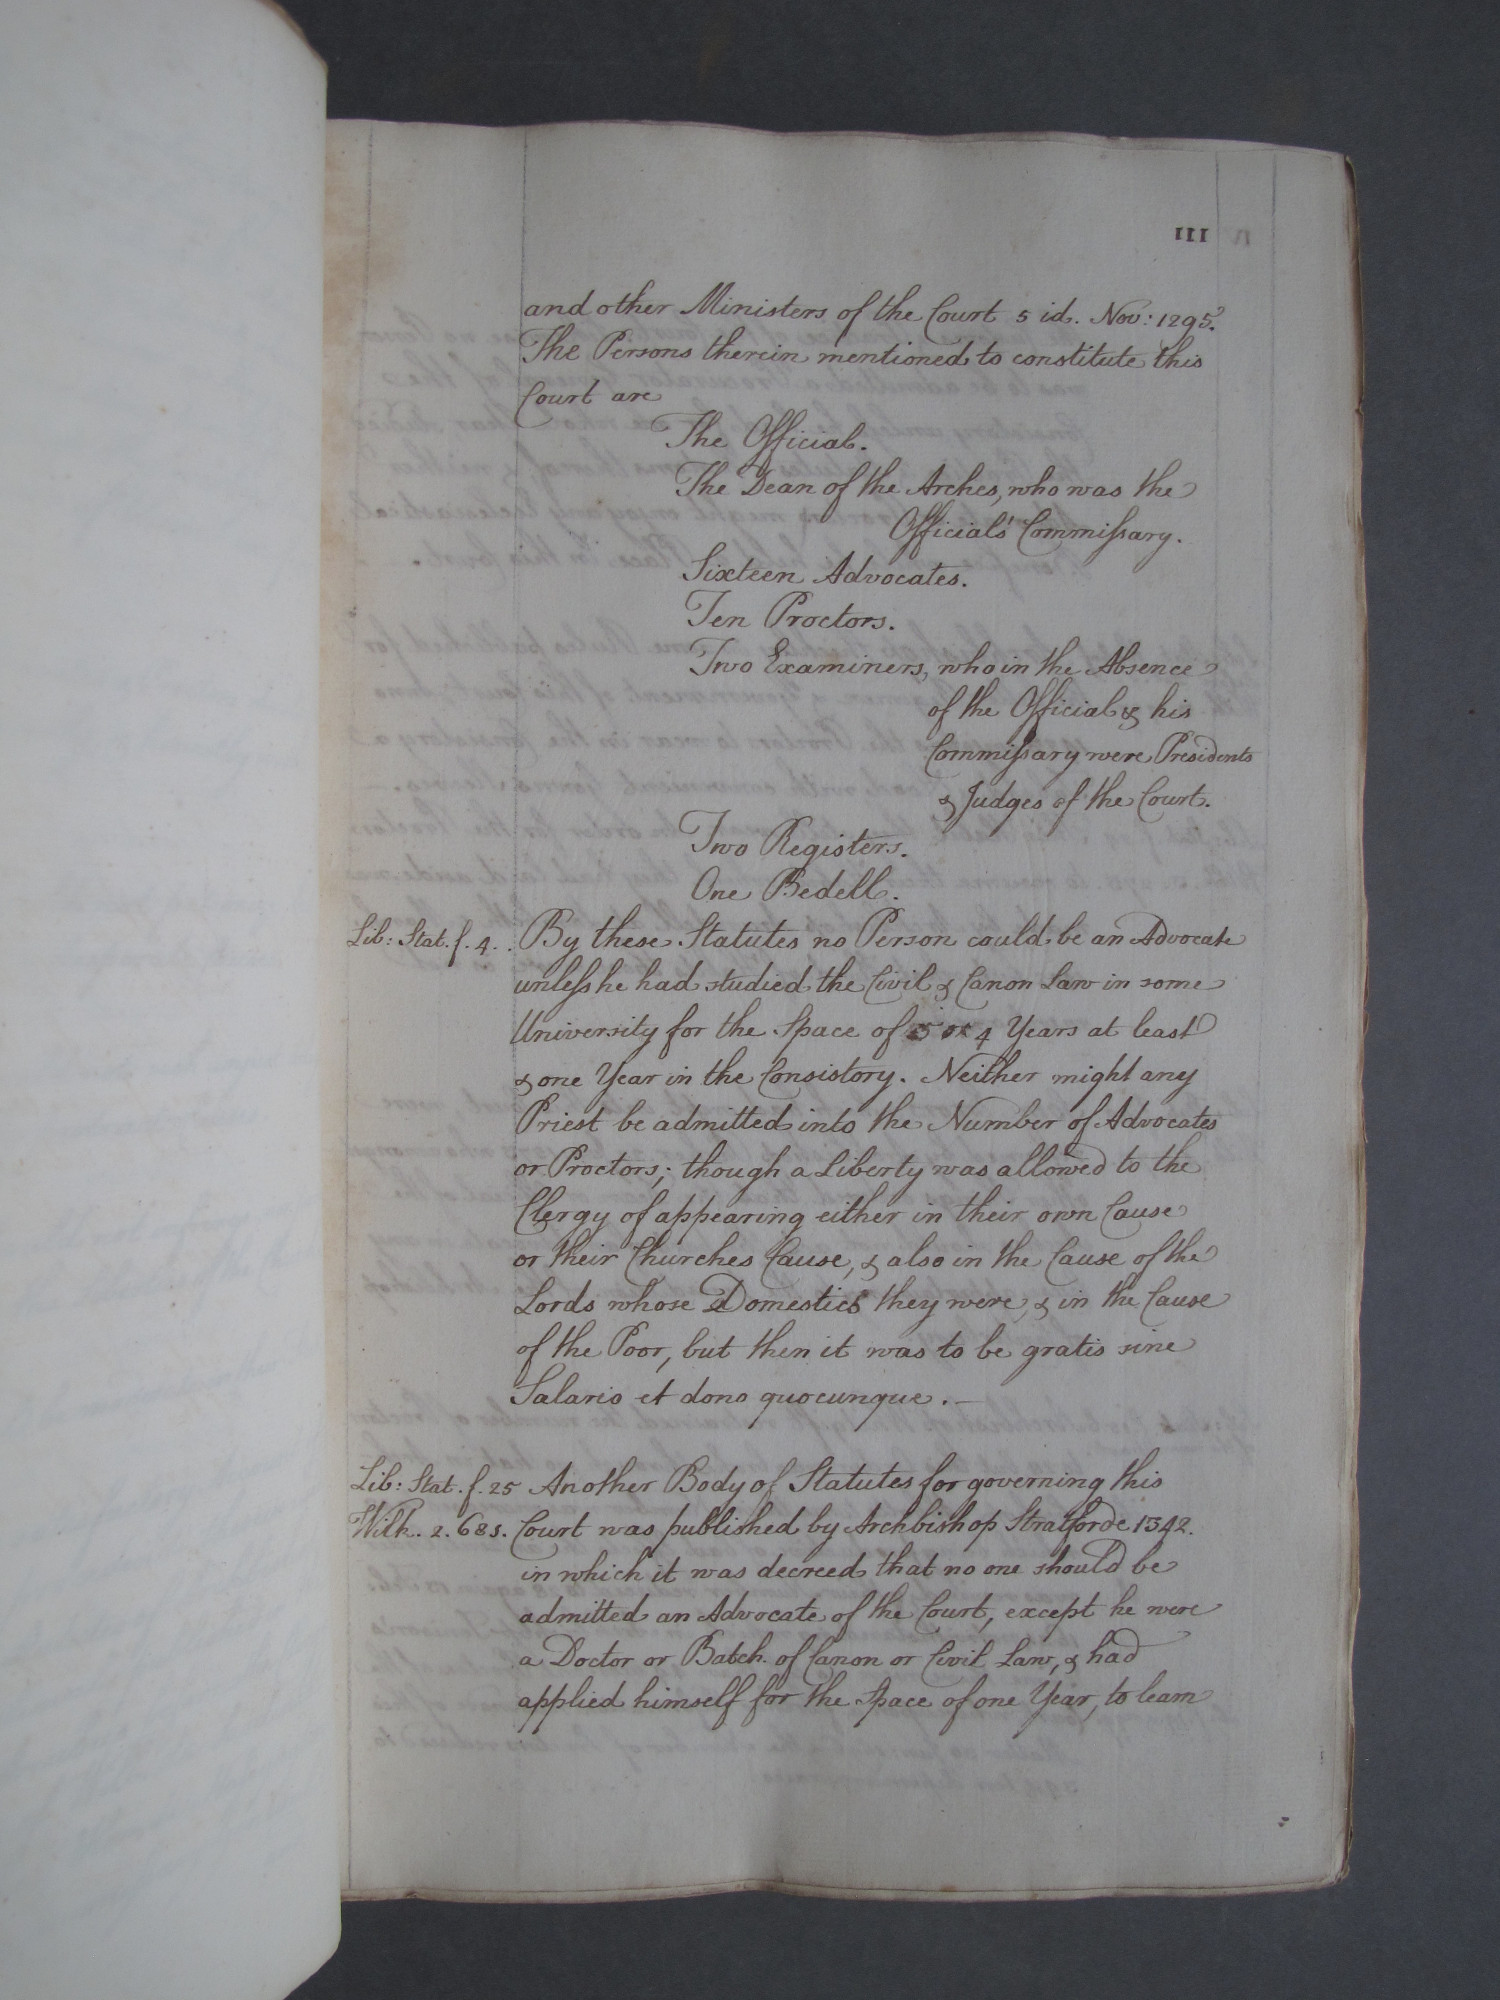 111
and other Ministers of the Court 5 id. Nov: 1295.
The Persons therein mentioned to constitute this
Court are
The Official.
The Dean of the Arches, who was the
Official's Commissary.
Sixteen Advocates.
Ten Proctors.
Two Examiners, who in the Absence
of the Official & his
Commissary were Presidents
& Judges of the Court.
Two Registers.
One Bedell.
Lib: Stat. f. 4. By these Statutes no Person could be an Advocate
unless he had studied the Civil & Canon Law in some
University for the Space of or 4 Years at least
& one Year in the Consistory. Neither might any
Priest be admitted into the Number of Advocates
or Proctors; though a Liberty was allowed to the
Clergy of appearing either in their own Cause
or their Churches Cause, & also in the Cause of the
Lords whose Domestics they were, & in the Cause
of the Poor, but then it was to be gratis sine
Salario et dono quocunque. —
Lib: Stat. f. 25 Another Body of Statutes for governing this
Wilk. 2. 681. Court was published by Archbishop Stratforde 1342.
in which it was decreed that no one should be
admitted an Advocate of the Court, except he were
a Doctor or Batch. of Canon or Civil Law, & had
applied himself for the Space of one Year, to learn